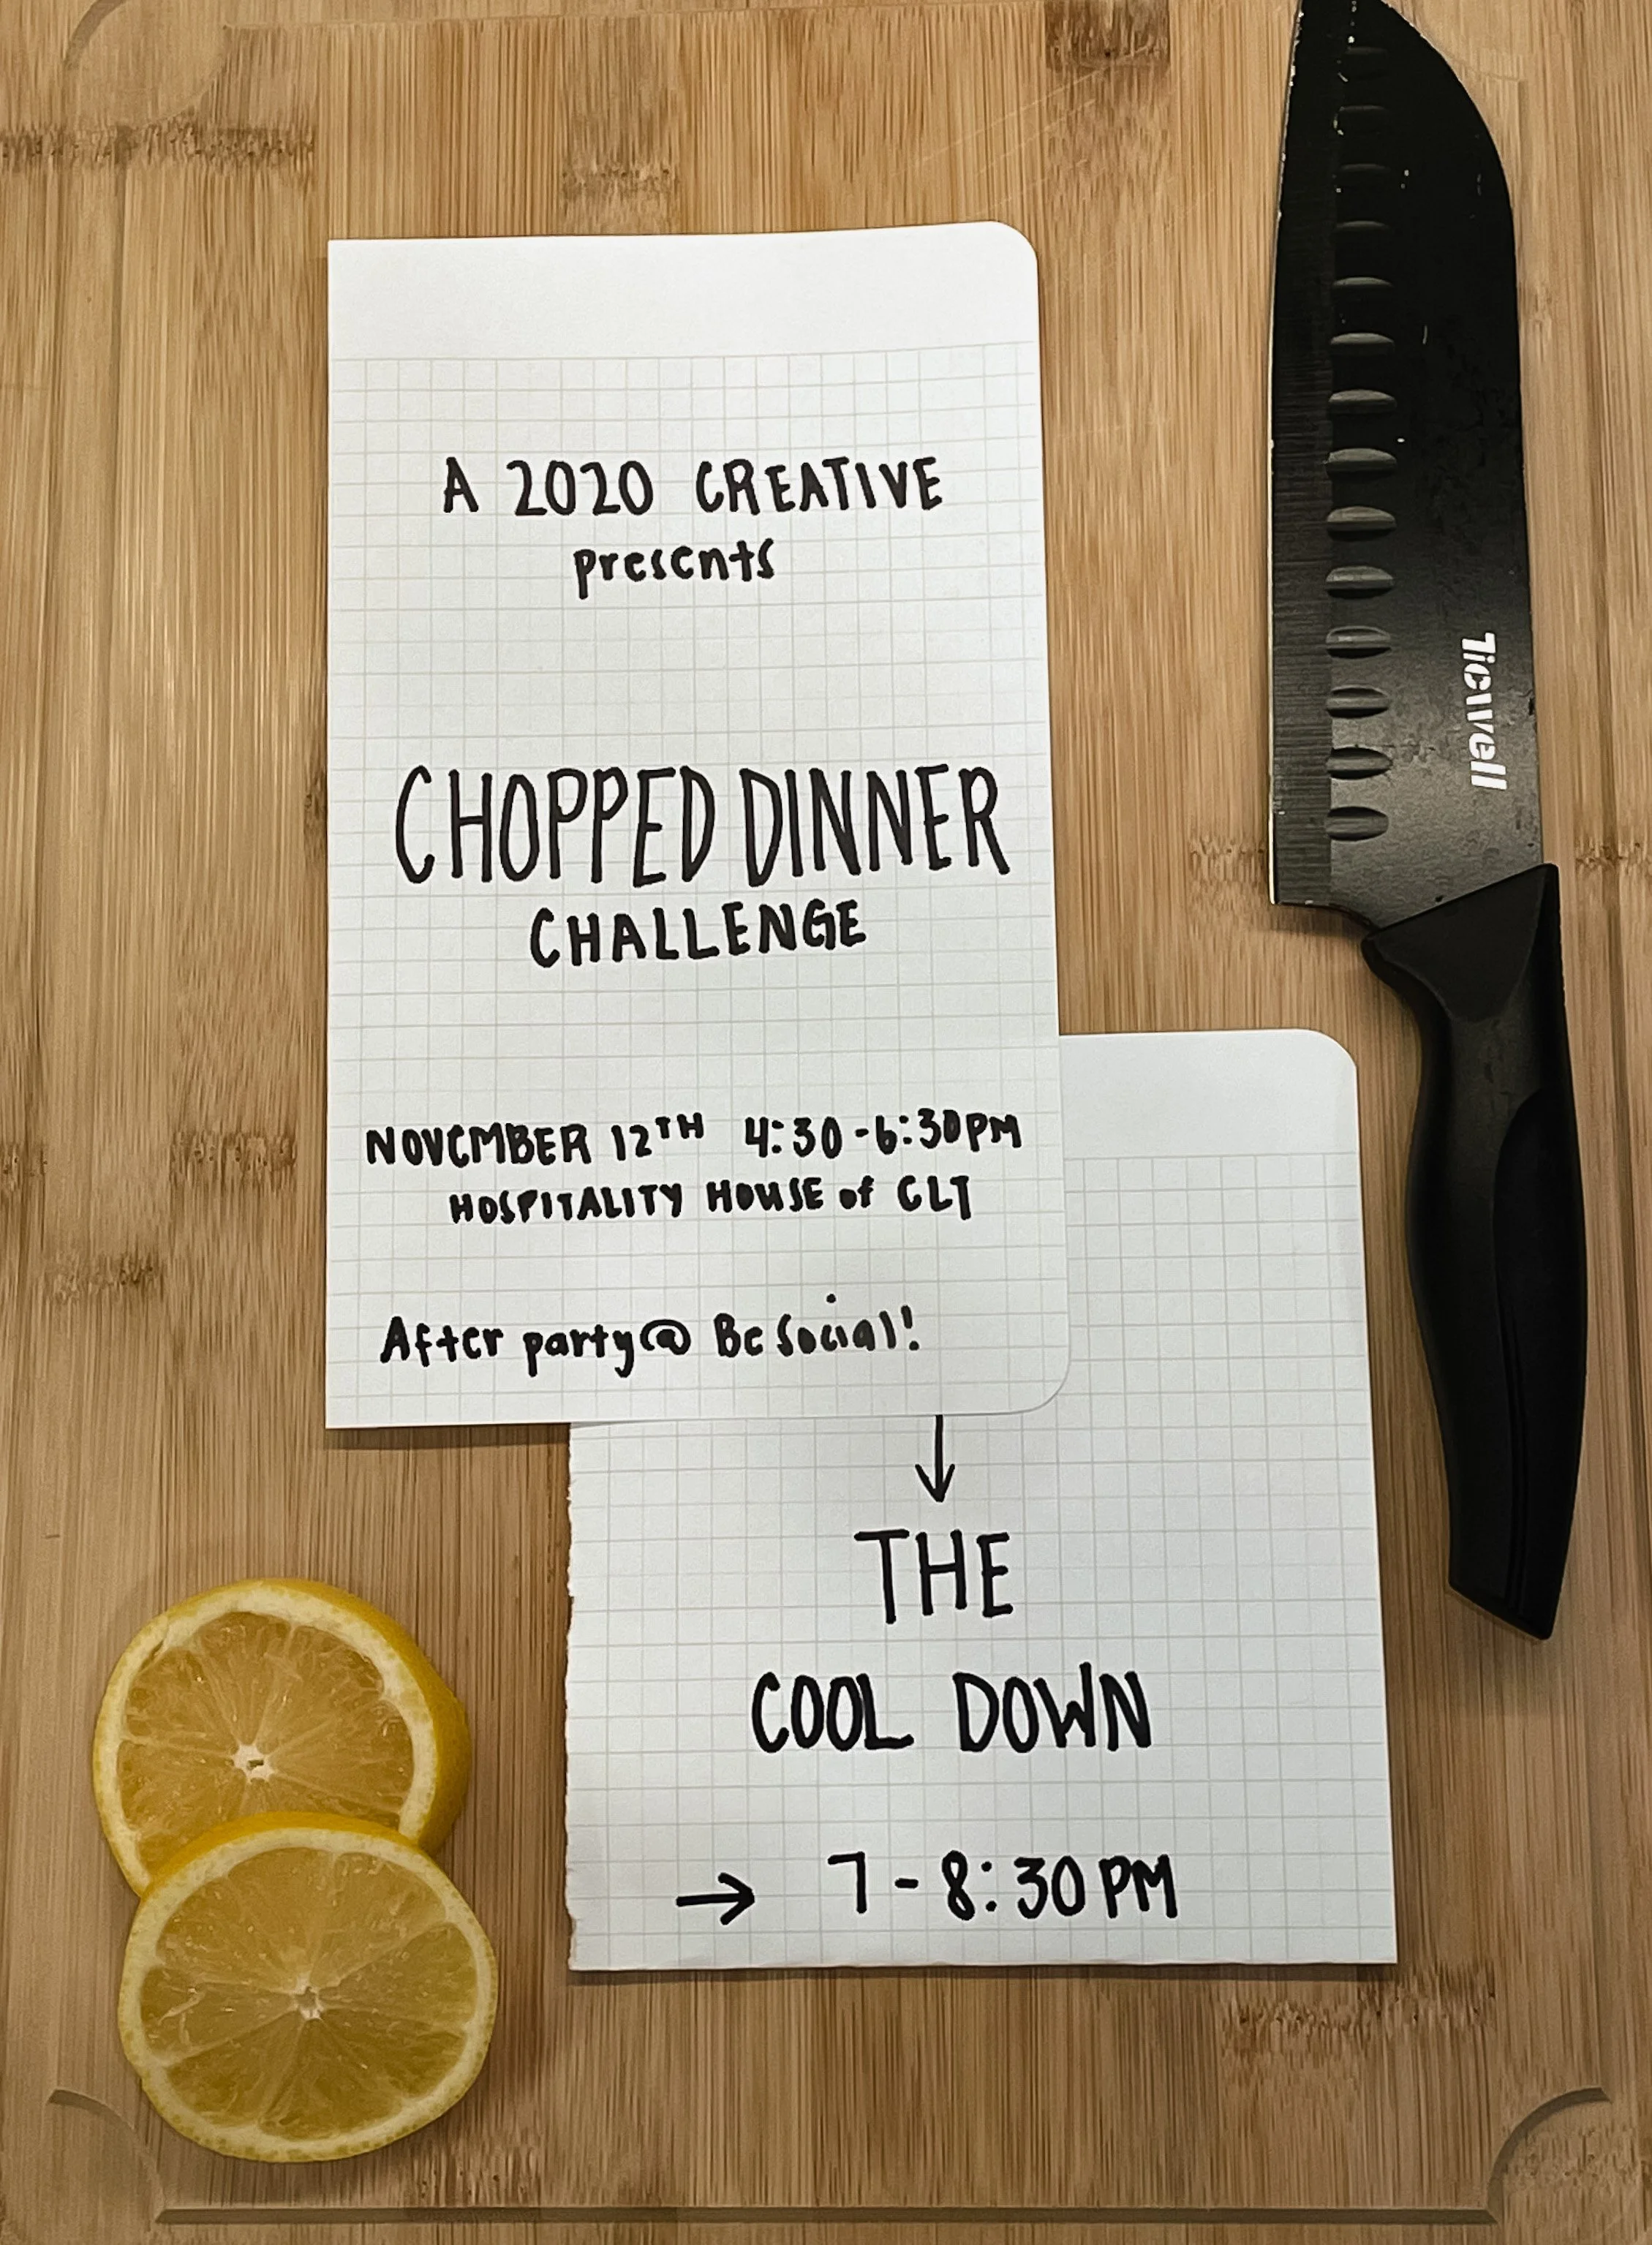 A 2020 CREATIVE
presents
CHOPPED DINNER
CHALLENGE
NOVEMBER 12TH 4:30-6:30PM
HOSPITALITY HOUSE of CLT
After party@ Be Social!
THE
COOL DOWN
→ 7-8:30PM
Ticwell